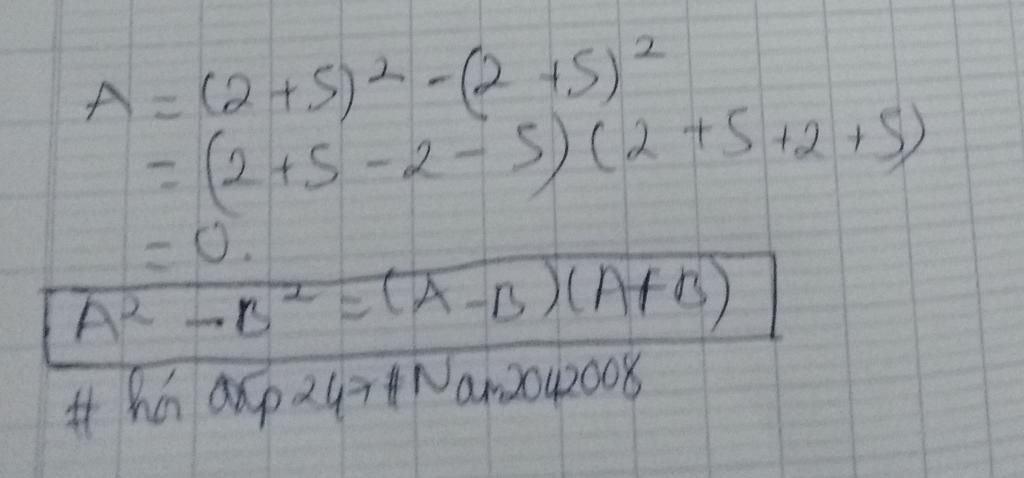 A = (2+5)² - (2+5)²
= (2+5-2-5)(2+5+2+5)
= 0.
A² - B² = (A-B)(A+B)
# hỏi đáp 247 #Nam2042008